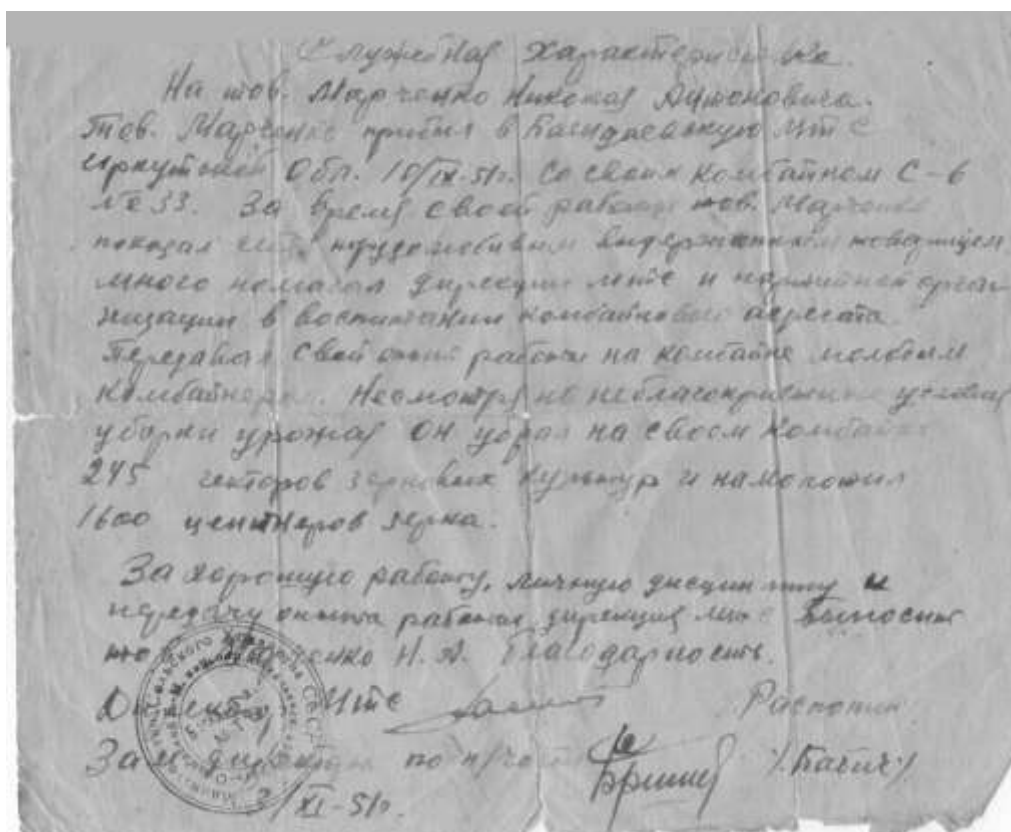 Служебная Характеристика.
На тов. Марченко Николая Антоновича.
Тов. Марченко прибыл в Баяндаевскую МТС
Иркутской Обл. 10/IX-51г. со своим комбайном С-6
№ 33. За время своей работы тов. Марченко
показал себя трудолюбивым выдержанным товарищем
много помогал дирекции МТС и партийной орга-
низации в воспитании комбайнового агрегата.
Передавая свой опыт работы на комбайне молодым
комбайнерам. Несмотря на неблагоприятные условия
уборки урожая он убрал на своем комбайне
245 гектаров зерновых культур и намолотил
1600 центнеров зерна.
За хорошую работу, личную дисциплину и
передачу опыта работы дирекция МТС выносит
тов. Марченко Н. А. благодарность.
Директор МТС
Зам. директора по п/части
/XI-51г.